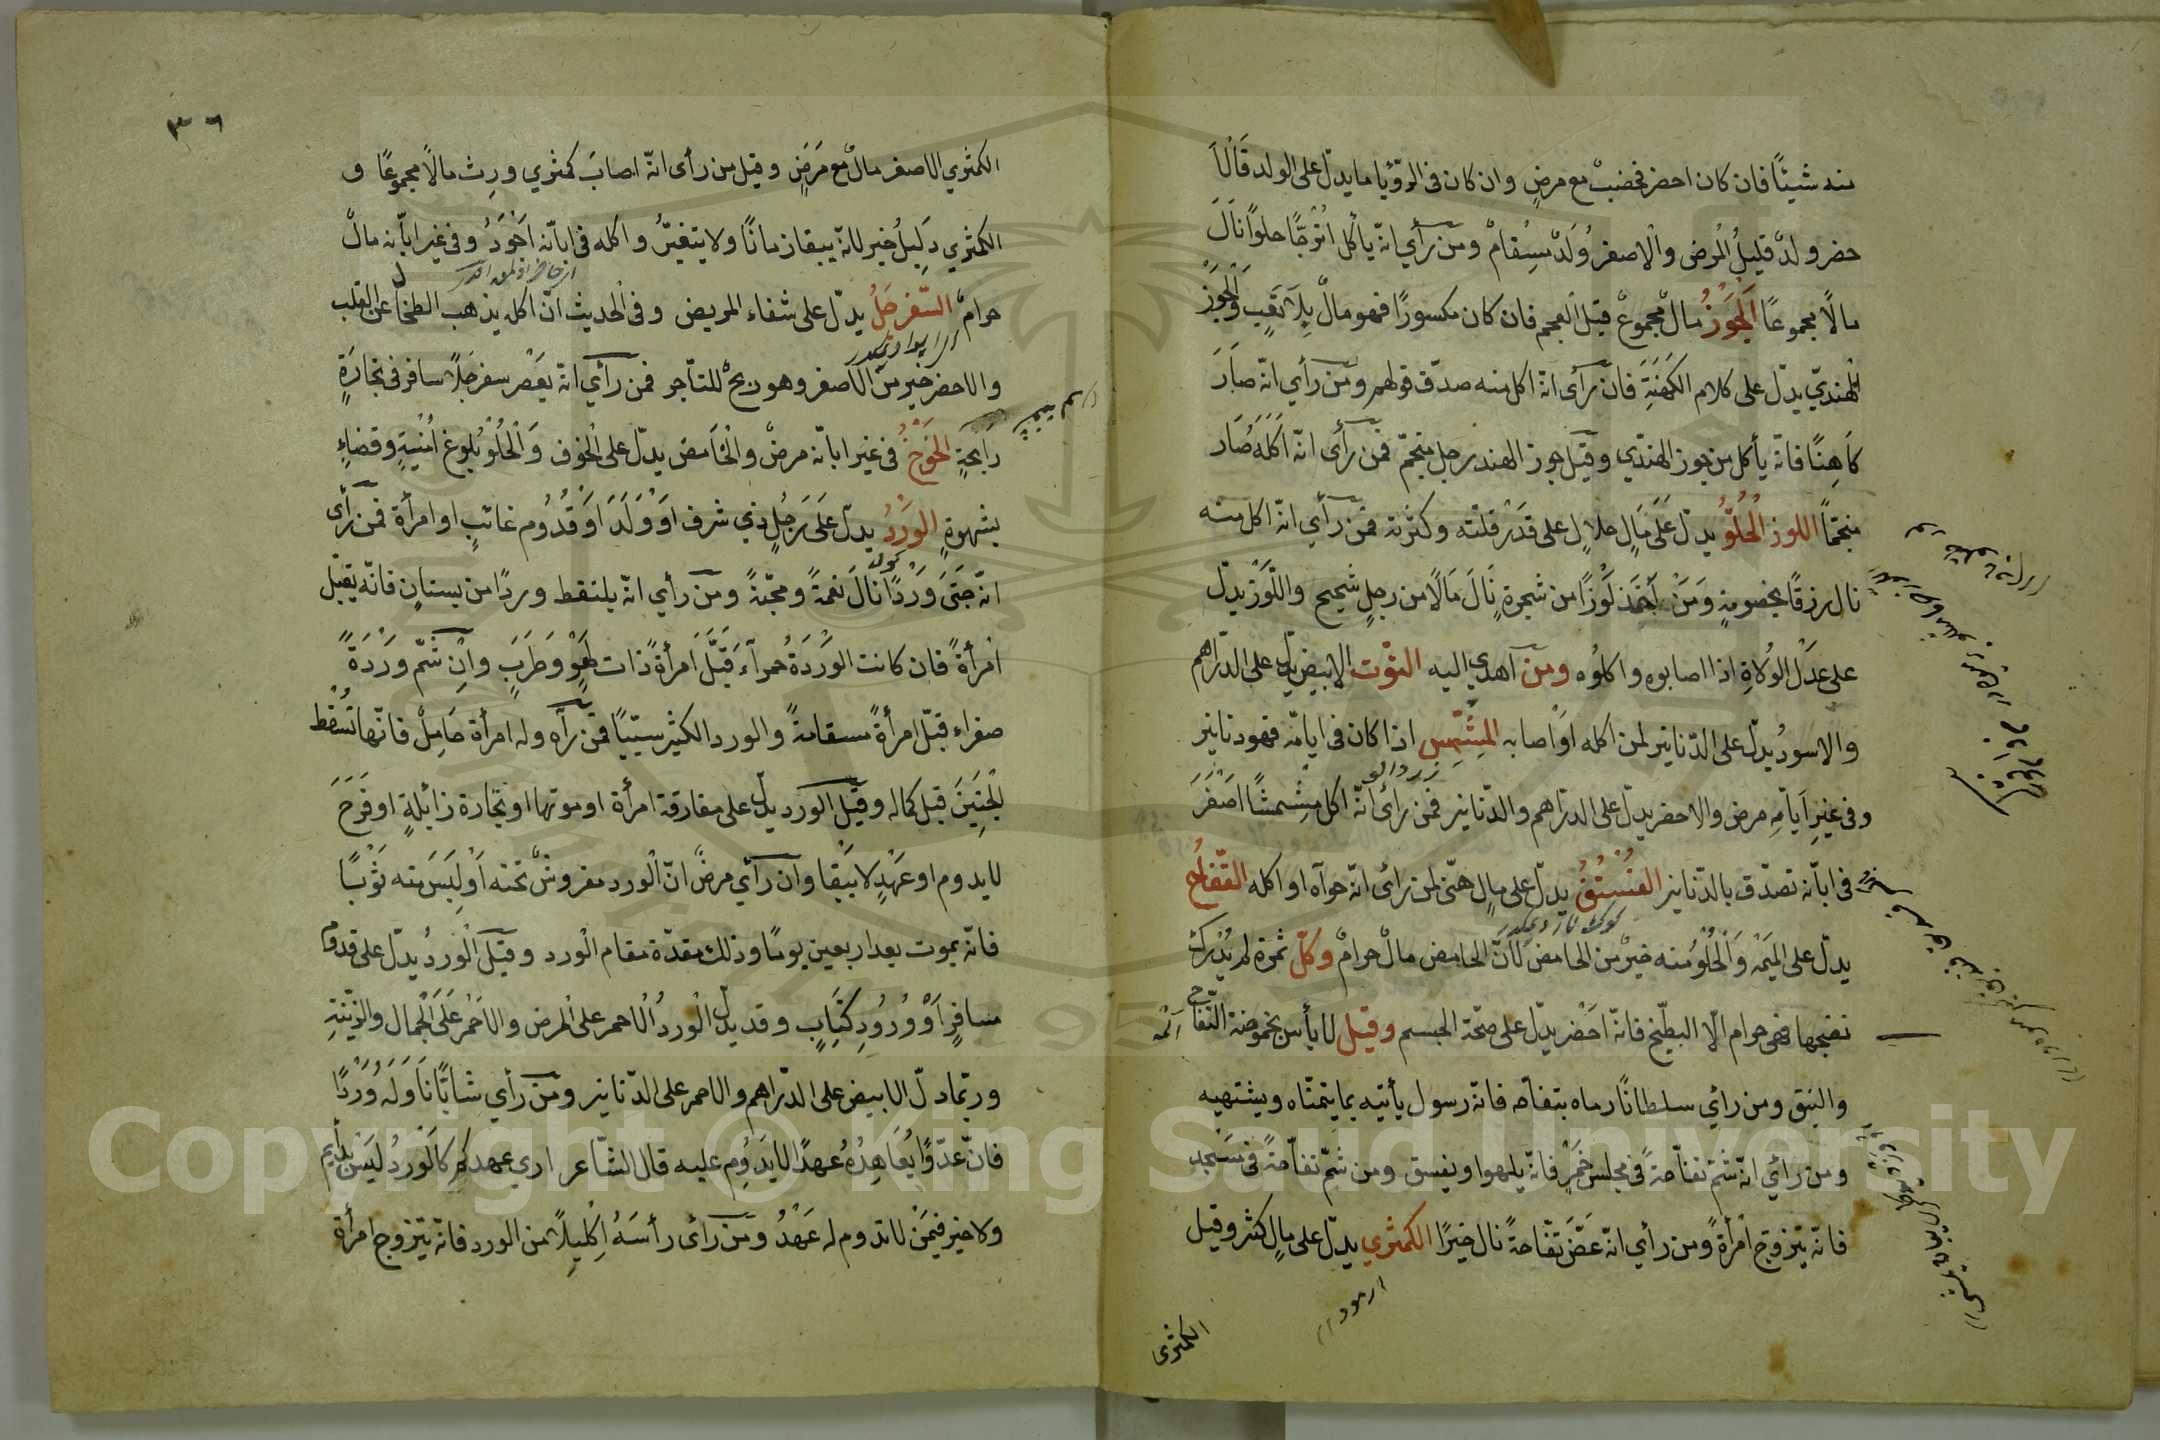 منه شيئًا فان كان احضر فخضب مع مرضٍ وان كان في الرؤيا ما يدلّ على الولد قَالْاَ
حضر ولدْ قليلُ المرض والاصفرُ وُلَدْ مِسِقامْ ومن رأي انّه يأكل اتْرجًّا حلوًا نَالَ
مالًا مجموعًا الْجَوْزُ مالْ مجموعْ قيل العجم فان كان مكسورًا فهو مالْ بِلَا تَعَبٍ وَالْجَوْز
الهنديّ يدلّ على كلام الكَهَنَةِ فان رآى انّه اكل منه صدّق قولهم ومن رأي انّه صَارَ
كاَهِنًا فانّه يأكل من جوز الهنديّ وقيل جوز الهند رجل منجمّ فمن رآى انّه اَكَلَهُ صَار
منجمّا اللوز الْحُلْوُ يدلّ عَلَى مَالٍ حلالٍ على قَدْر قلّته وكثرته فمن رآي انّه اكل منه
نال رزقًا بخصومةٍ وَمَنْ أَخَذ لَوْزًا من شجرةٍ نَالَ مَالًا من رجلٍ شَحيح واللّوْز يدلّ
على عدْل الوُلاةِ اذا اصابوه واكلوُه ومن اهدي اليه التوْت الابيض يدلّ على الدرّاهم
والاسودُ يدلّ على الدّنانيز لمن اكله اوْ اصابه المِشْمِس اذا كان في ايامّه فهو دنانيز
زردالو
وفي غيرِ آيامّهِ مرض والاحضر يدلّ على الدرّاهم والدّنانيز فمن رائ انّه اكل مِشِمشًا اصْفَرَ
في ابانّه تصدّق بالدّنانيز الفُسْتُقُ يدلّ على مالٍ هنّى لمن رائ انّه حوآه او اكله التّفاُح
يدلّ على الهمّة وَالْحُلْوُ منه خيرْ من الحامض لانّ الحامض مالْ حرامْ وكلّ ثمرة لم يُدْرك
نضجها فهى حرام الّا البطّيخ فانّه احْضر يدلّ على صحّة الجسم وقيل لا بأس بحموضة التّفاح
والنبق ومن رائ سلطانًا رماه بتفاحّه فانّه رسول يأتيه بما يتمنّاه ويشتهيه
ومن رأي انّه شمّ تفاحّةً في مجلس خَمْرٍ فانّه يلهوا ويفسق ومن شمّ تفاحّةً في مَسْجد
فانّه يتزوّج امْرأةً ومن رأي انّه عَضَّ تفّاحةً نال خيرًا الكمثري يدلّ على مالٍ كثر وقيل
ارمود
الكمثرى
٣٦
الكمثري الاصفر مالْ مع مَرَضٍ وقيل من رأى انّه اصابَ كمثري ورِث مالًا مجموعًا و
الكمثري دَلِيلُ خير لانّه يبقا زمانًا ولا يتغيّرُ واكله في ابانّه اَجْوَدُ وفي غير ابانّه مالْ
حرامْ السّفرجَلُ يدلّ على شفاء المريض وفي الحديث انّ اكله يذهب الطخا عن القلب
والاحضر خير من الاصفر وهو ربحْ للتاجر فمن رأي انّه يَعْصر سفرجَلًا سافر في تجارَةٍ
رَابحةٍ الخَوْخُ في غير ابانّه مرضْ والحَامض يدلّ على الخوف وَالْحُلْوُ بُلوغ اُمْنيةٍ وقضاءِ
شهوةٍ الوَرْدُ يدلّ عَلَى رَجُلٍ ذي شرف اوْ وَلَدَ اوْ قُدُوم غائبٍ او امرأة فمن رأى
انّه جَنَى وَرْدًا نَالَ نعمةً ومحبّةً ومن رأي انّه يلتقط وردًا من بستانٍ فانّه يقبل
امْرأةً فان كانت الوَرْدَةُ حمرآءَ قَبَّلَ اَمرأةً ذات لَهْوٍ وَطَرَبٍ واِن شمّ ورْدَةً
صفراء قبّل امرأةً مسقامةً والورد الكثير سيّئًا فمن رآه وله امرأة حَامِلْ فانّها تُسْقط
الجنِيَنَ قبل كماله وقيل الورد يدلّ على مفارقة امرأة او موتها او تجارة زائلةٍ او فَرَحَ
لا يدوم او عَهْدٍ لا يَبْقا وان رأي مرضً انّ الْورد مفروشْ تحته اَوْ لَبَسَ منه ثَوْبًا
فانّه يموت بعد اربعين يومًا وذلك مقدّة مقام الْورد وقيل الْوردُ يدلّ على قدوم
مسافرٍ اَوْ وُرُودِ كِتَابٍ وقد يدلّ الْوردُ الاحمر على المرض والاحْمر عَلَى الجْمال والزّينةِ
وربّما دلّ الابيض على الدّراهم والاحمر على الدّنانيز ومن رأي شابّا نَاوَلَهُ وَرْدًا
فانّ عدّوًا يُعَاهِدُهُ عهدًا لا يَدوُم عليه قال الشّاعر اري عهدكم كالْوَردُ ليَسْ بدأيم
ولا خير فيمَنْ لا تدوم له عَهْدُ ومن رآئ رأسَهُ اِكْليلًا من الورد فانّه يتزوج امرأة